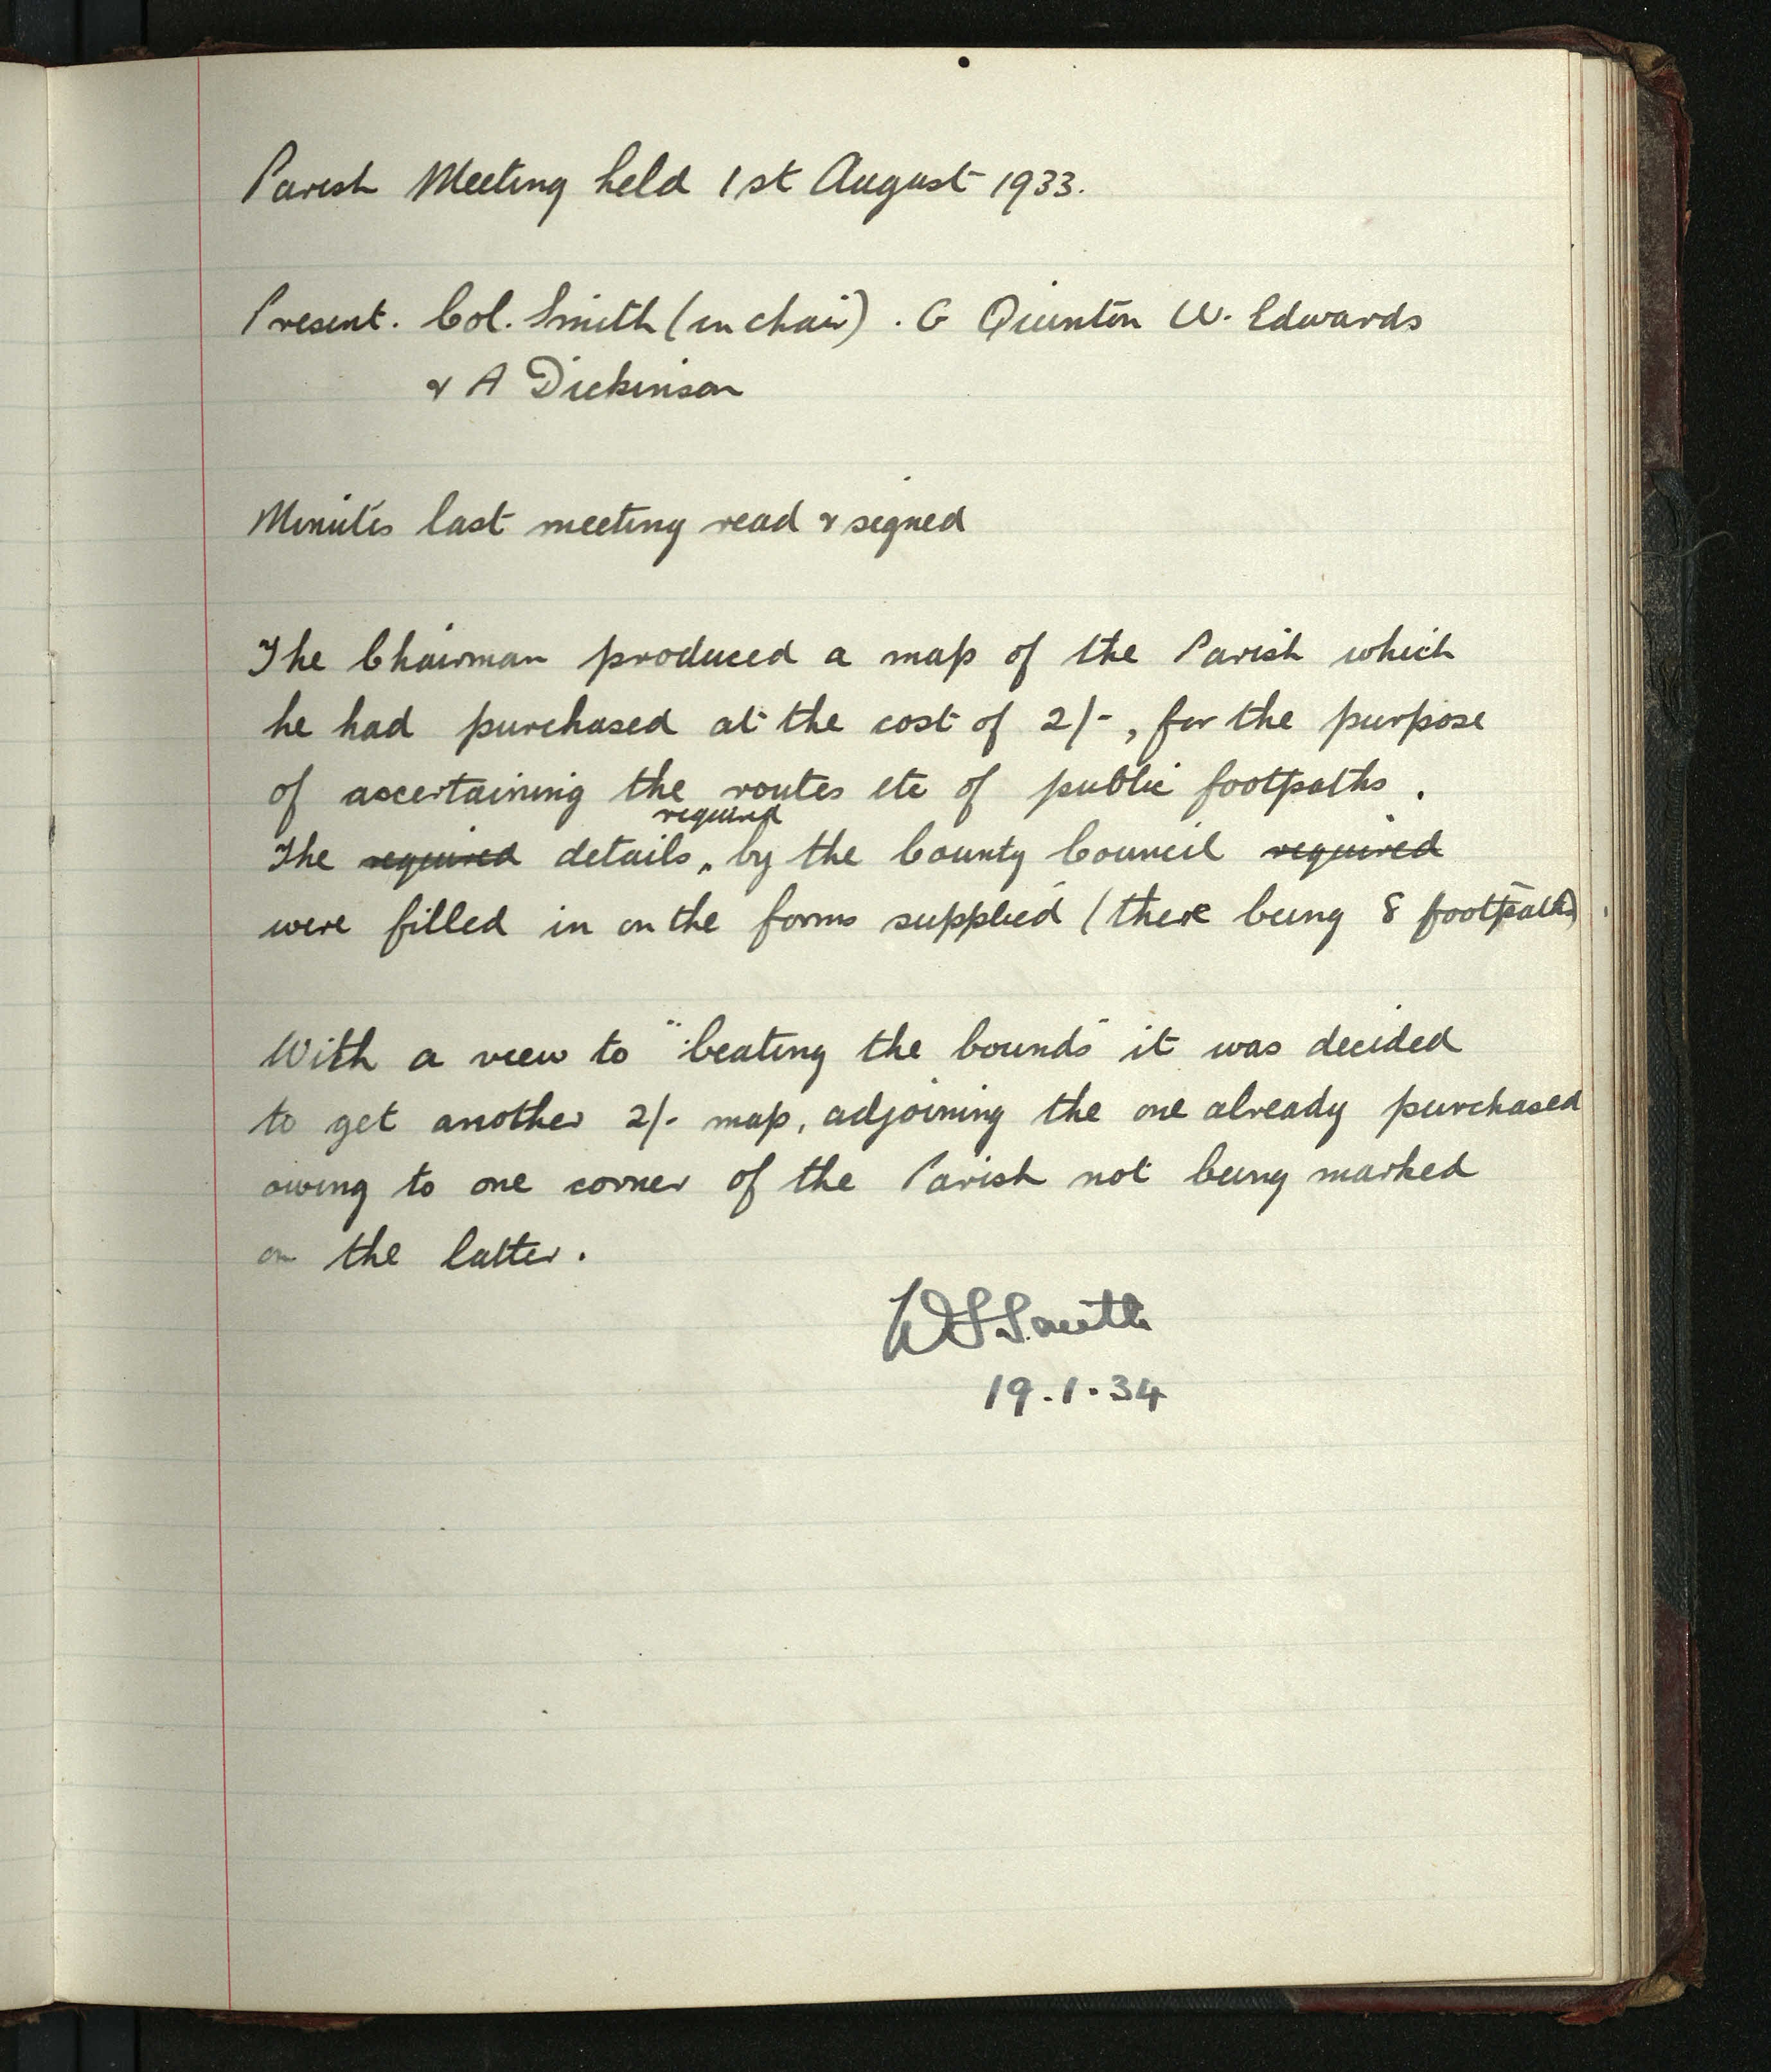 Parish Meeting held 1st August 1933.
Present. Col. Smith (in chair). G Quinton W. Edwards
& A Dickinson
Minutes last meeting read & signed
The Chairman produced a map of the Parish which
he had purchased at the cost of 2/-, for the purpose
of ascertaining the routes etc of public footpaths.
required
The required details, by the County Council required
were filled in on the forms supplied (there being 8 footpaths)
With a view to "beating the bounds" it was decided
to get another 2/- map, adjoining the one already purchased
owing to one corner of the Parish not being marked
on the latter.
WSSmith
19.1.34